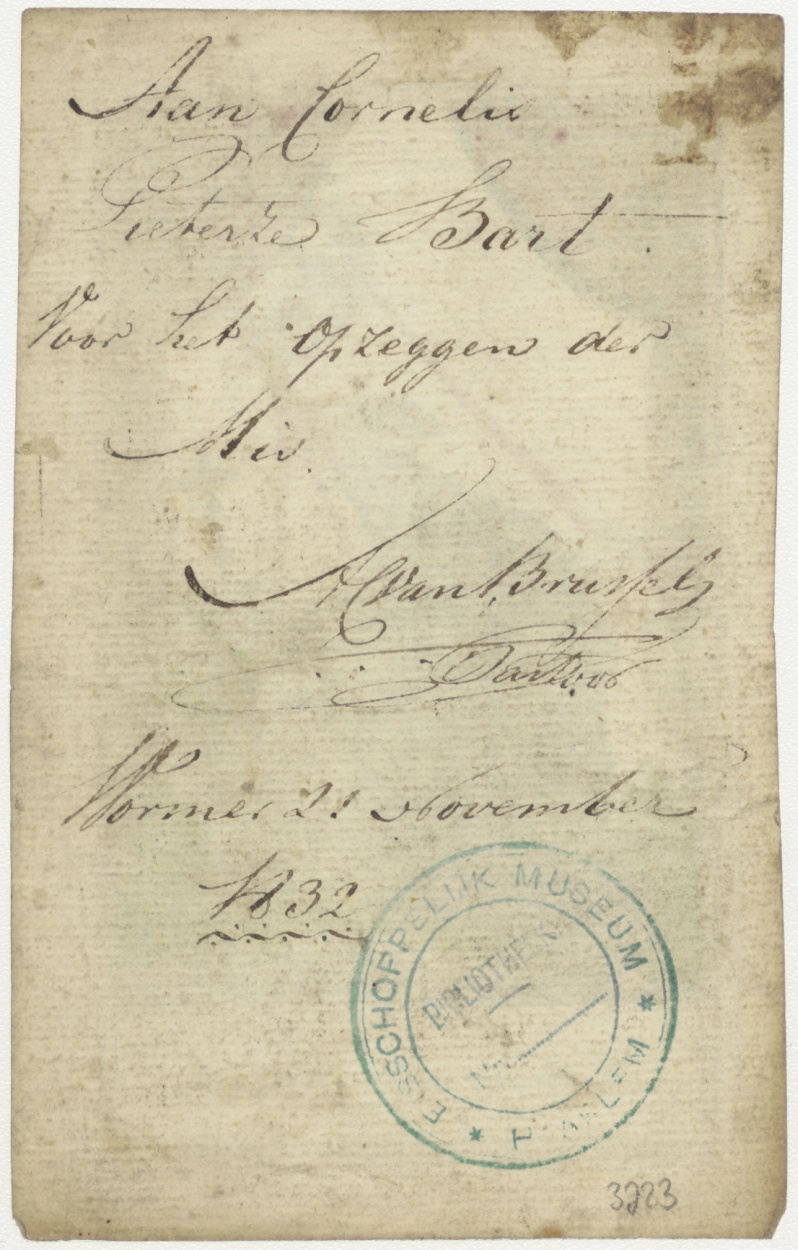 Aan Cornelis
Pieterze Bart.
Voor het Opzeggen der
Mis
A C van Brussel
Pastoor
Wormer 21 November
1832
BISSCHOPPELIJK MUSEUM * HAARLEM *
BIBLIOTHEEK
No.
3223